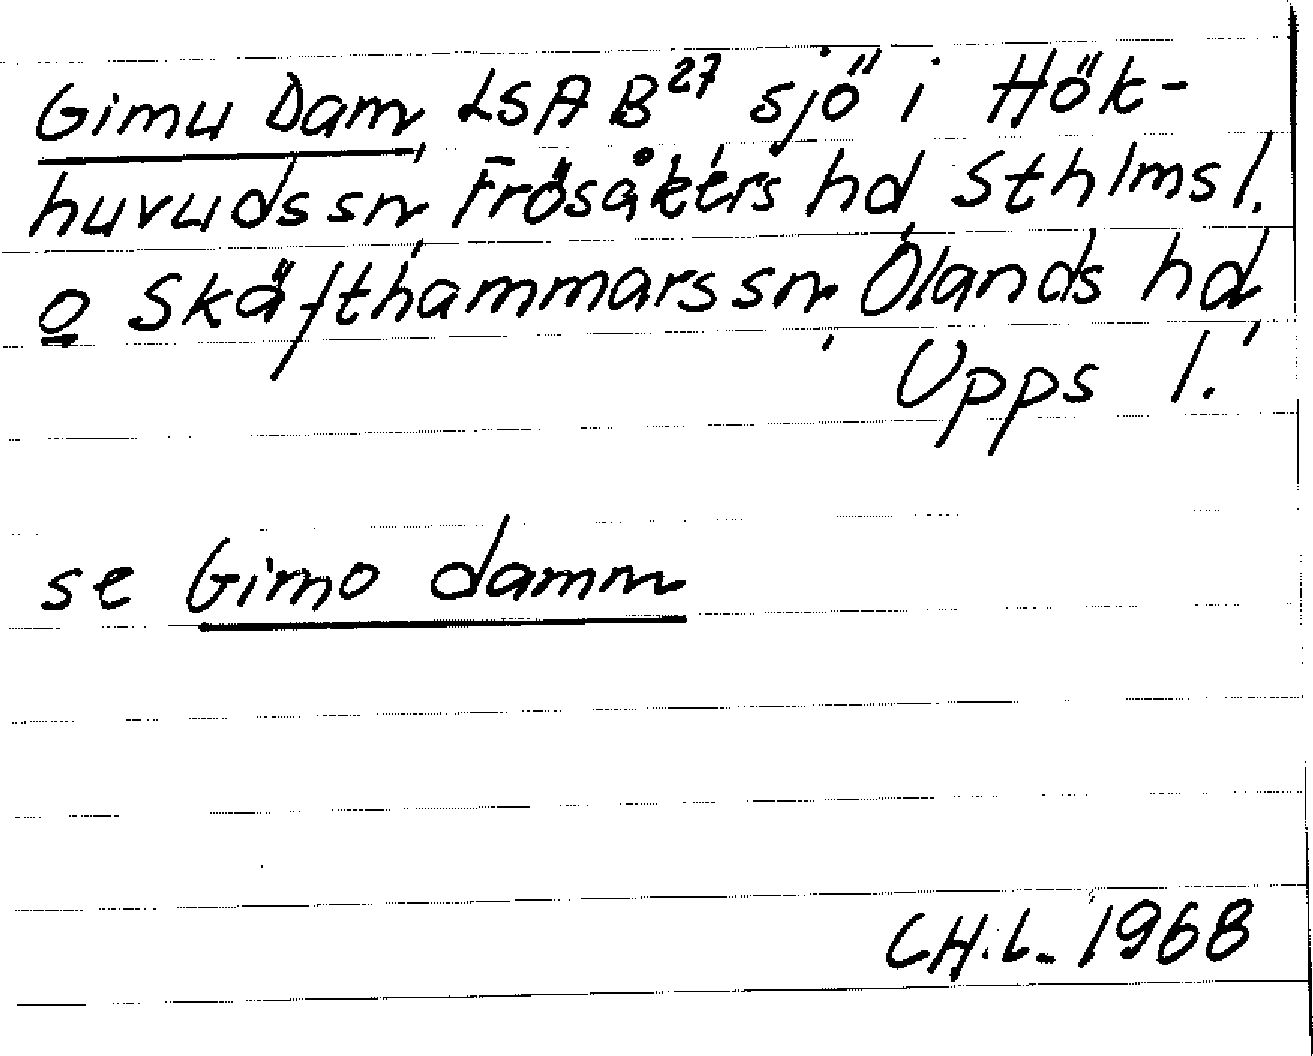 Gimu Dam, LSA B²⁷ sjö i Hök-
huvuds sn, Frösåkers hd, Sthlms l.
o Skäfthammars sn, Ölands hd,
Upps l.
se Gimo damm
CH.L. 1968